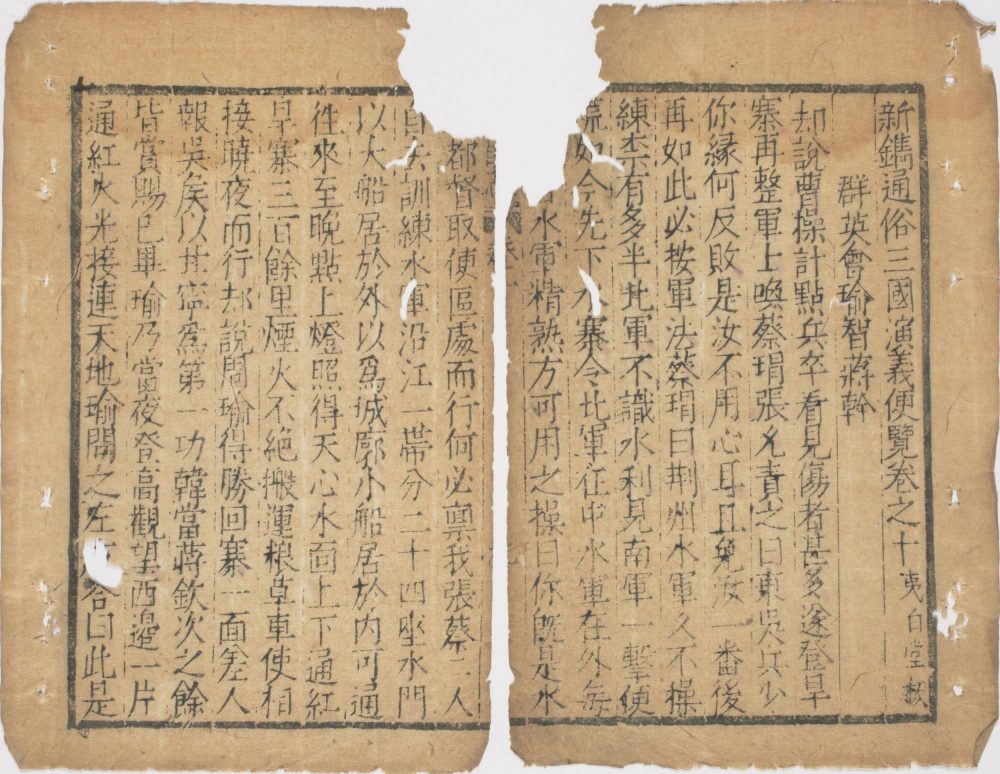 新鐫通俗三國演義便覽卷之十 夷白堂
群英會瑜智蔣幹
却說曹操計點兵卒看見傷者甚多遂登旱
寨再整軍上喚蔡瑁張允責之曰東吳兵少
你緣何反敗是汝不用心耳且免汝一番後
再如此必按軍法蔡瑁曰荆州水軍久不操
練有多半北軍不識水利見南軍一擊便
慌如今先下水寨令北軍在中水軍在外每
水軍精熟方可用之操曰你既是水
都督取便區處而行何必禀我張蔡二人
自去訓練水軍沿江一帶分二十四座水門
以大船居於外以爲城廓小船居於内可通
徃來至晚點上燈照得天心水面上下通紅
旱寨三百餘里煙火不絶搬運粮草車使相
接曉夜而行却說周瑜得勝回寨一面差人
報吳侯以甘寧爲第一功韓當蔣欽次之餘
皆賞賜已畢瑜乃當夜登高觀望西邉一片
通紅火光接連天地瑜問之左右答曰此是